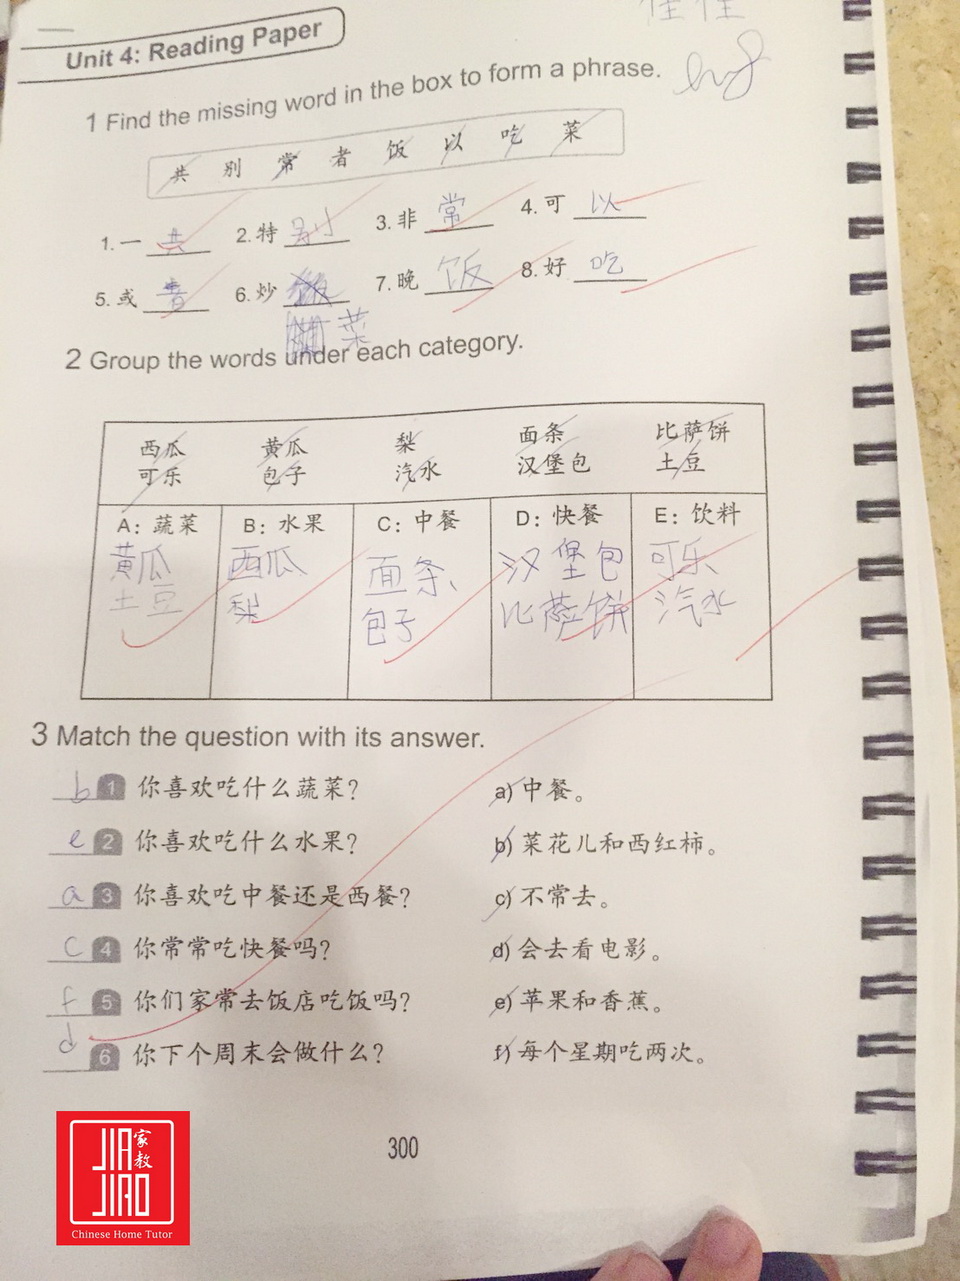 佳佳
Unit 4: Reading Paper
1 Find the missing word in the box to form a phrase.
共 别 常 者 饭 以 吃 菜
1. 一 共 2. 特 别 3. 非 常 4. 可 以
5. 或 者 6. 炒 菜 7. 晚 饭 8. 好 吃
2 Group the words under each category.
西瓜 黄瓜 梨 面条 比萨饼
可乐 包子 汽水 汉堡包 土豆
A: 蔬菜 B: 水果 C: 中餐 D: 快餐 E: 饮料
黄瓜 西瓜 面条 汉堡包 可乐
土豆 梨 包子 比萨饼 汽水
3 Match the question with its answer.
b 1 你喜欢吃什么蔬菜? a) 中餐。
e 2 你喜欢吃什么水果? b) 菜花儿和西红柿。
a 3 你喜欢吃中餐还是西餐? c) 不常去。
c 4 你常常吃快餐吗? d) 会去看电影。
f 5 你们家常去饭店吃饭吗? e) 苹果和香蕉。
d 6 你下个周末会做什么? f) 每个星期吃两次。
300
JIA 家教
JIAO
Chinese Home Tutor